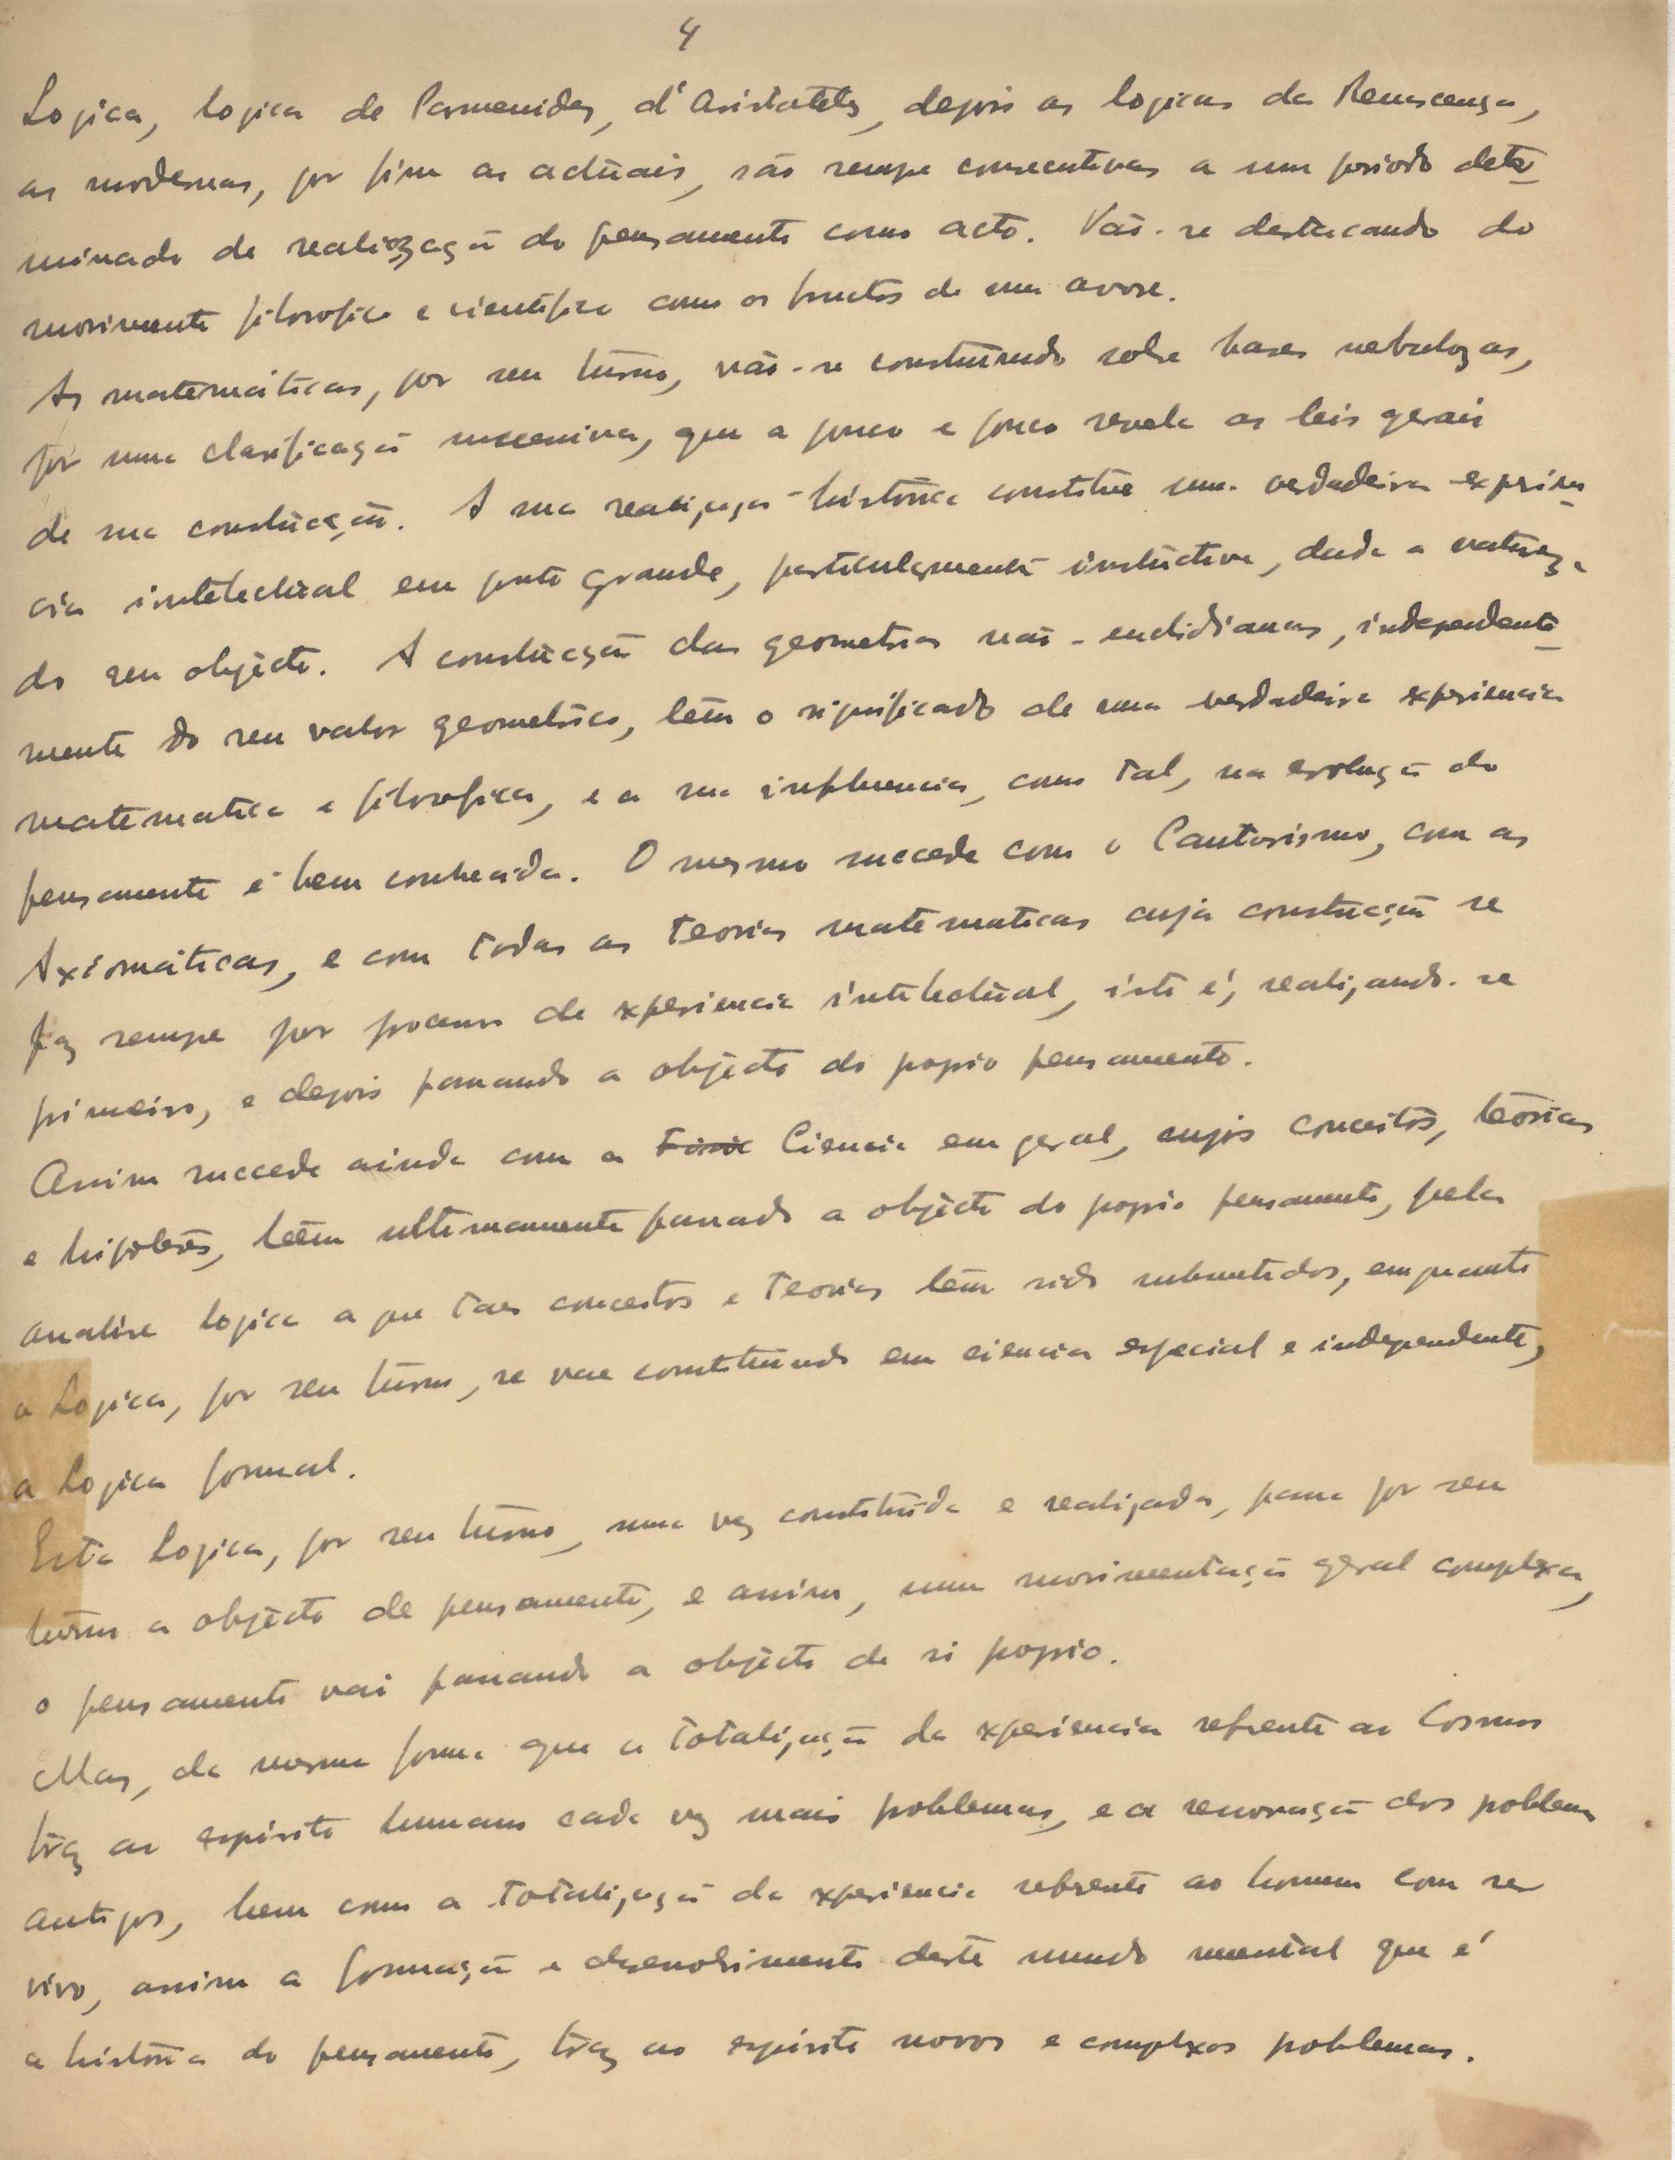 4
Logica, logica de Parmenides, d'Aristoteles, depois as logicas da Renascença,
as modernas, por fim as actuais, são sempre consecutivas a um periodo deter-
minado de realização do pensamento como acto. Vão-se destacando do
movimento filosofico e cientifico como os fructos de uma arvore.
As matemáticas, por seu turno, vão-se construindo sobre bases nebulosas,
por uma clarificação sucessiva, que a pouco e pouco revela as leis gerais
de sua construcção. A sua realização historica constitue uma verdadeira experien-
cia intelectual em ponto grande, particularmente instructiva, dada a natureza
do seu objécto. A construcção das geometrias não-euclidianas, independente-
mente do seu valor geometrico, têm o significado de uma verdadeira experiencia
matematica e filosofica, e a sua influencia, como tal, na evolução do
pensamento é bem conhecida. O mesmo succede com o Cantorismo, com as
Axiomáticas, e com todas as teorias matematicas cuja construcção se
faz sempre por processos de experiencia intelectual, isto é, realizando-se
primeiro, e depois passando a objécto do proprio pensamento.
Assim succede ainda com a Ciencia em geral, cujos conceitos, teorias
e hipoteses, teem ultimamente passado a objécto do proprio pensamento, pela
analise logica a que taes conceitos e teorias têm sido submetidos, emquanto
a Logica, por seu turno, se vae constituindo em ciencia especial e independente,
a Logica formal.
Esta Logica, por seu turno, uma vez constituida e realizada, passa por seu
turno a objécto de pensamento, e assim, numa movimentação geral complexa,
o pensamento vai passando a objécto de si proprio.
Mas, da mesma forma que a totalização da experiencia referente ao Cosmos
traz ao espirito humano cada vez mais problemas, e a renovação dos problemas
antigos, bem como a totalização da experiencia referente ao homem como ser
vivo, assim a formação e desenvolvimento deste mundo mental que é
a história do pensamento, traz ao espirito novos e complexos problemas.